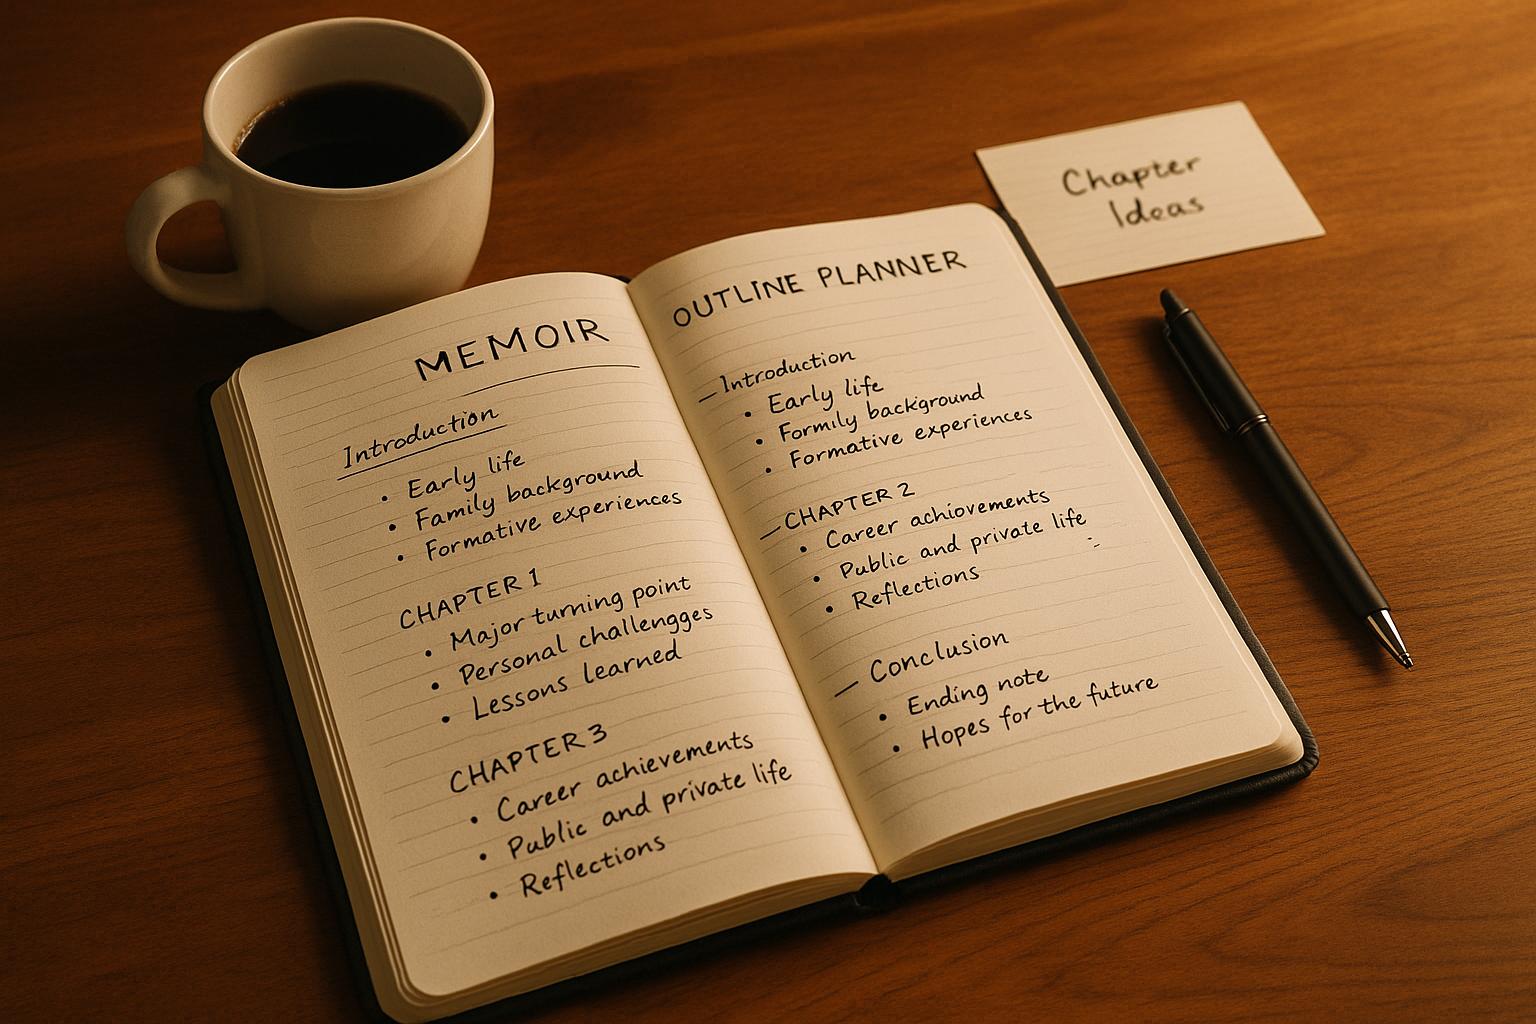 MEMOIR
Introduction
• Early life
• Family background
• Formative experiences
CHAPTER 1
• Major turning point
• Personal challengges
• Lessons learned
CHAPTER 3
• Career achievements
• Public and private life
• Reflections
OUTLINE PLANNER
— Introduction
• Early life
• Formily background
• Formative experiences
— CHAPTER 2
• Career achiovements
• Public and private life
• Reflections
— Conclusion
• Ending note
• Hopes for the future
Chapter
Ideas